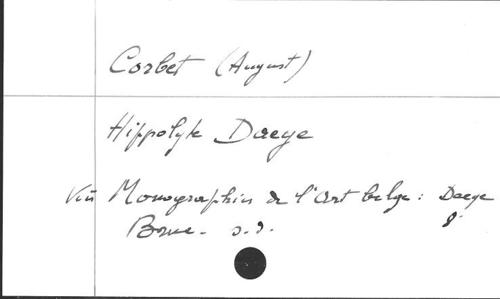 Corbet (August)
Hippolyte Daeye
Monographies de l'Art belge : Daeye
s.d. 8°